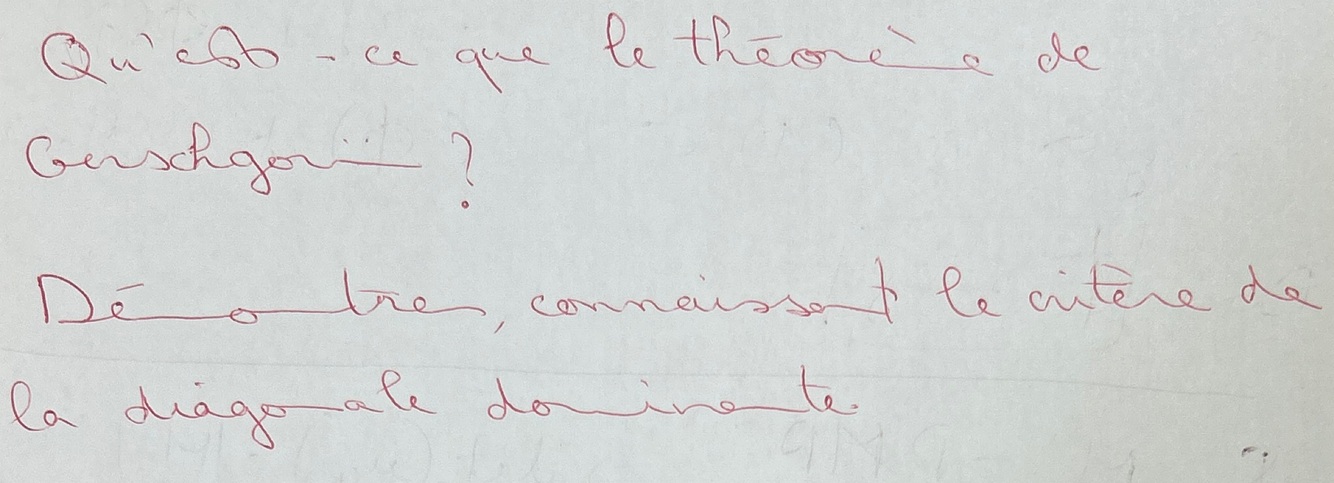 Qu'est-ce que le théorème de
Gerschgorin ?
Démontrer, connaissant le critère de
la diagonale dominante.